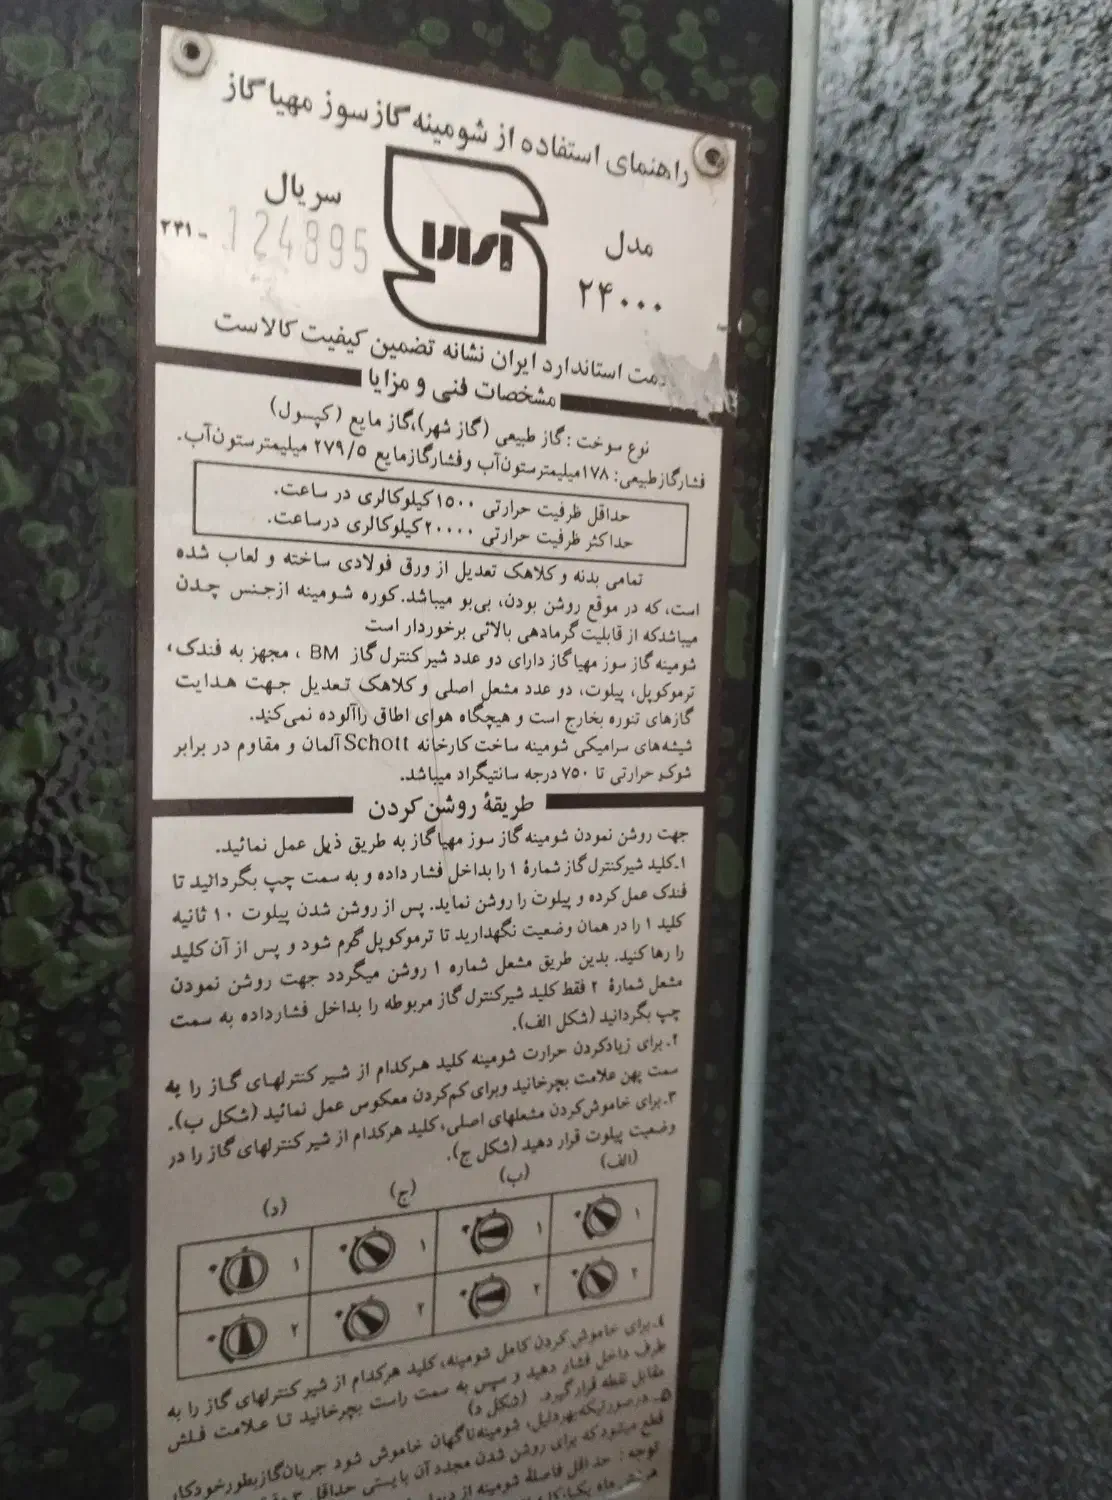 راهنمای استفاده از شومینه گاز سوز مهیا گاز
مدل
۲۴۰۰۰
سریال
۲۳۱- 124895
استاندارد ایران نشانه تضمین کیفیت کالاست
مشخصات فنی و مزایا
نوع سوخت : گاز طبیعی (گاز شهر)،گاز مایع (کپسول)
فشار گاز طبیعی: ۱۷۸میلیمتر ستون آب و فشار گاز مایع ۲۷۹/۵ میلیمتر ستون آب.
حداقل ظرفیت حرارتی ۱۵۰۰کیلوکالری در ساعت.
حداکثر ظرفیت حرارتی ۲۰۰۰۰کیلوکالری درساعت.
تمامی بدنه و کلاهک تعدیل از ورق فولادی ساخته و لعاب شده
است، که در موقع روشن بودن، بی‌بو میباشد. کوره شومینه ازجنس چدن
میباشدکه از قابلیت گرمادهی بالائی برخوردار است
شومینه گاز سوز مهیا گاز دارای دو عدد شیر کنترل گاز BM ، مجهز به فندک،
ترموکوپل، پیلوت، دو عدد مشعل اصلی و کلاهک تعدیل جهت هدایت
گازهای تنوره بخارج است و هیچگاه هوای اطاق راآلوده نمی‌کند.
شیشه‌های سرامیکی شومینه ساخت کارخانه Schott آلمان و مقاوم در برابر
شوک حرارتی تا ۷۵۰ درجه سانتیگراد میباشد.
طریقهٔ روشن کردن
جهت روشن نمودن شومینه گاز سوز مهیا گاز به طریق ذیل عمل نمائید.
۱.کلید شیر کنترل گاز شمارهٔ ۱ را بداخل فشار داده و به سمت چپ بگردانید تا
فندک عمل کرده و پیلوت را روشن نماید. پس از روشن شدن پیلوت ۱۰ ثانیه
کلید ۱ را در همان وضعیت نگهدارید تا ترموکوپل گرم شود و پس از آن کلید
را رها کنید. بدین طریق مشعل شماره ۱ روشن میگردد جهت روشن نمودن
مشعل شمارهٔ ۲ فقط کلید شیرکنترل گاز مربوطه را بداخل فشارداده به سمت
چپ بگردانید (شکل الف).
۲.برای زیادکردن حرارت شومینه کلید هرکدام از شیر کنترلهای گاز را به
سمت پهن علامت بچرخانید وبرای کم‌کردن معکوس عمل نمائید (شکل ب).
۳.برای خاموش‌کردن مشعلهای اصلی، کلید هرکدام از شیر کنترلهای گاز را در
وضعیت پیلوت قرار دهید (شکل ج).
(الف) (ب) (ج) (د)
۱ ۱ ۱ ۱
۲ ۲ ۲ ۲
۴.برای خاموش کردن کامل شومینه، کلید هرکدام از شیر کنترلهای گاز را به
طرف داخل فشار دهید و سپس به سمت راست بچرخانید تا علامت فلش
مقابل نقطه قرار گیرد. (شکل د)
۵.درصورتیکه بهردلیل، شومینه ناگهان خاموش شود جریان گاز بطور خودکار
قطع میشود که برای روشن شدن مجدد آن بایستی حداقل ۳
توجه : حداقل فاصلهٔ شومینه از
هر شش ماه یکبار